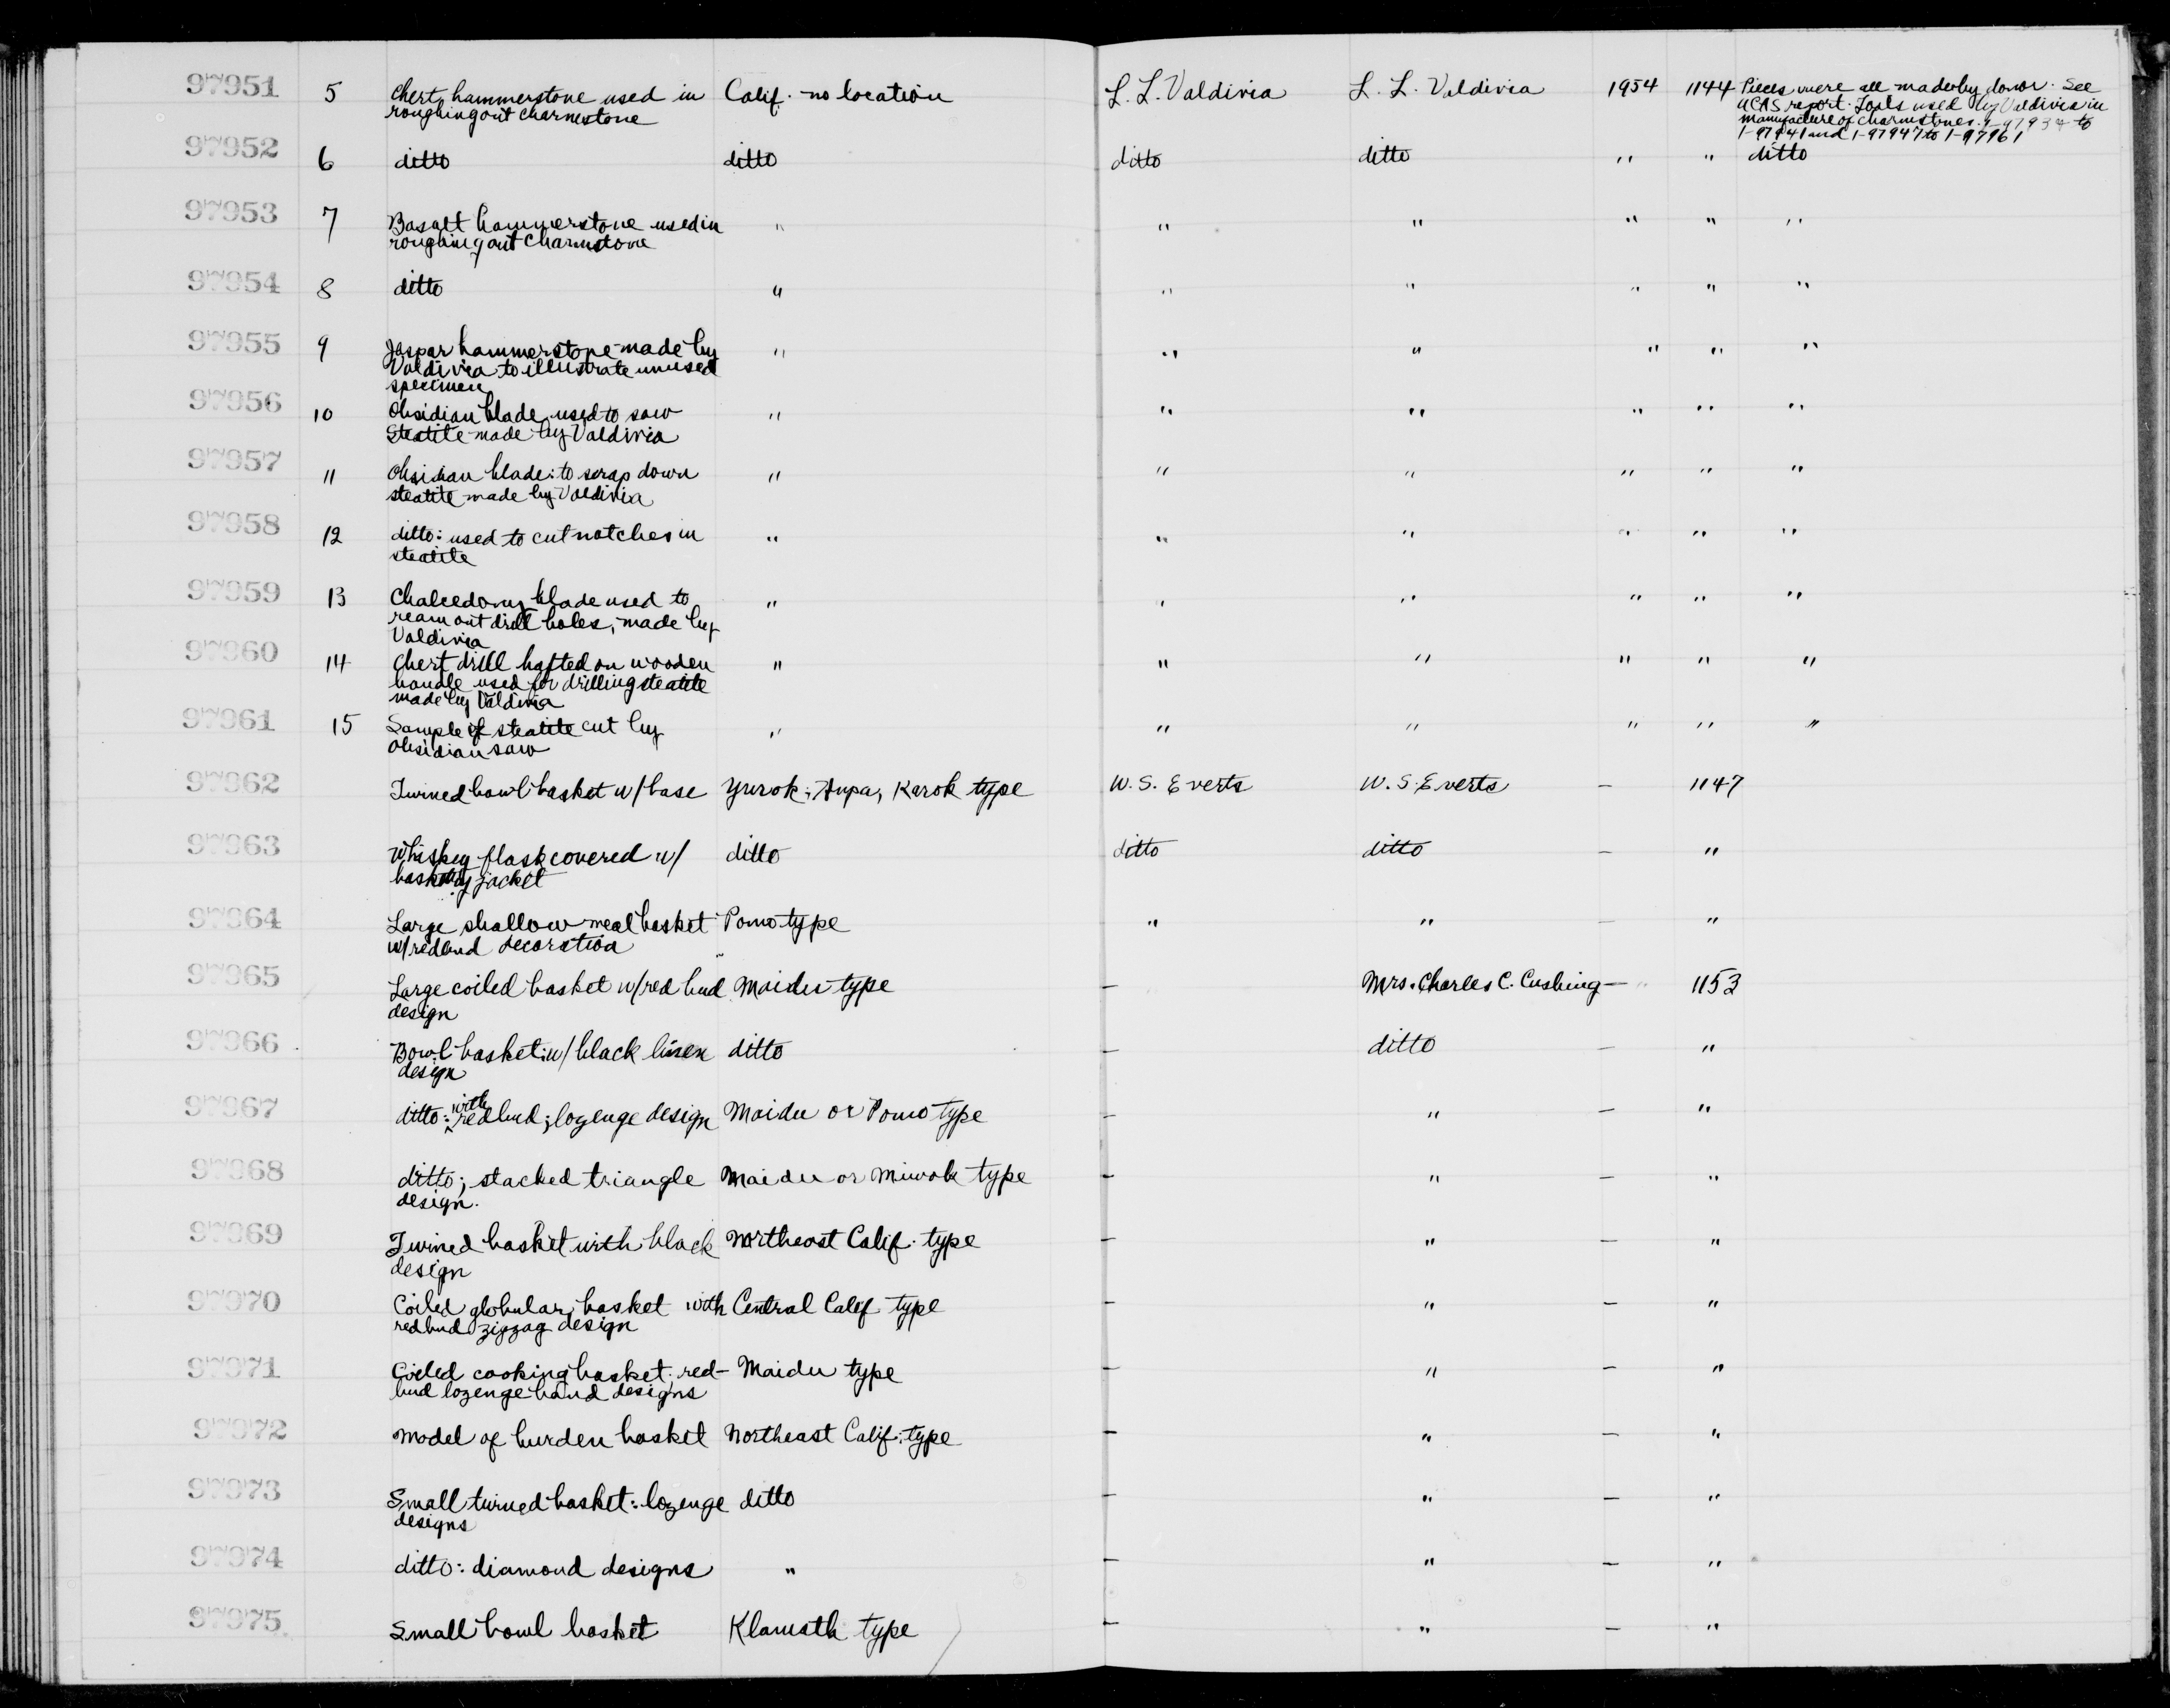 97951 5 Chert hammerstone used in Calif. no location L. L. Valdivia L. L. Valdivia 1954 1144 Pieces were all made by donor. See
roughing out charmstone UCAS report. Tools used by Valdivia in
manufacture of charmstones. 1-97934 to
1-97941 and 1-97947 to 1-97961
97952 6 ditto ditto ditto ditto " " ditto
97953 7 Basalt hammerstone used in " " " " " "
roughing out charmstone
97954 8 ditto " " " " " "
97955 9 Jaspar hammerstone made by " " " " " "
Valdivia to illustrate unused
specimen
97956 10 Obsidian blade used to saw " " " " " "
steatite made by Valdivia
97957 11 Obsidian blade: to scrap down " " " " " "
steatite made by Valdivia
97958 12 ditto: used to cut notches in " " " " " "
steatite
97959 13 Chalcedony blade used to " " " " " "
ream out drill holes, made by
Valdivia
97960 14 Chert drill hafted on wooden " " " " " "
handle used for drilling steatite
made by Valdivia
97961 15 Sample of steatite cut by " " " " " "
obsidian saw
97962 Twined bowl basket w/ base Yurok, Hupa, Karok type W. S. Everts W. S. Everts — 1147
97963 Whiskey flask covered w/ ditto ditto ditto — "
basketry jacket
97964 Large shallow meal basket Pomo type " " — "
w/ redbud decoration
97965 Large coiled basket w/ red bud Maidu type — Mrs. Charles C. Cushing — 1153
design
97966 Bowl basket: w/ black ditto — ditto — "
design
97967 ditto: with redbud; lozenge design Maidu or Pomo type — " — "
97968 ditto; stacked triangle Maidu or Miwok type — " — "
design.
97969 Twined basket with black Northeast Calif. type — " — "
design
97970 Coiled globular basket with Central Calif type — " — "
redbud zigzag design
97971 Coiled cooking basket; red- Maidu type — " — "
bud lozenge band designs
97972 Model of burden basket Northeast Calif. type — " — "
97973 Small twined basket: lozenge ditto — " — "
designs
97974 ditto: diamond designs " — " — "
97975 Small bowl basket Klamath type — " — "